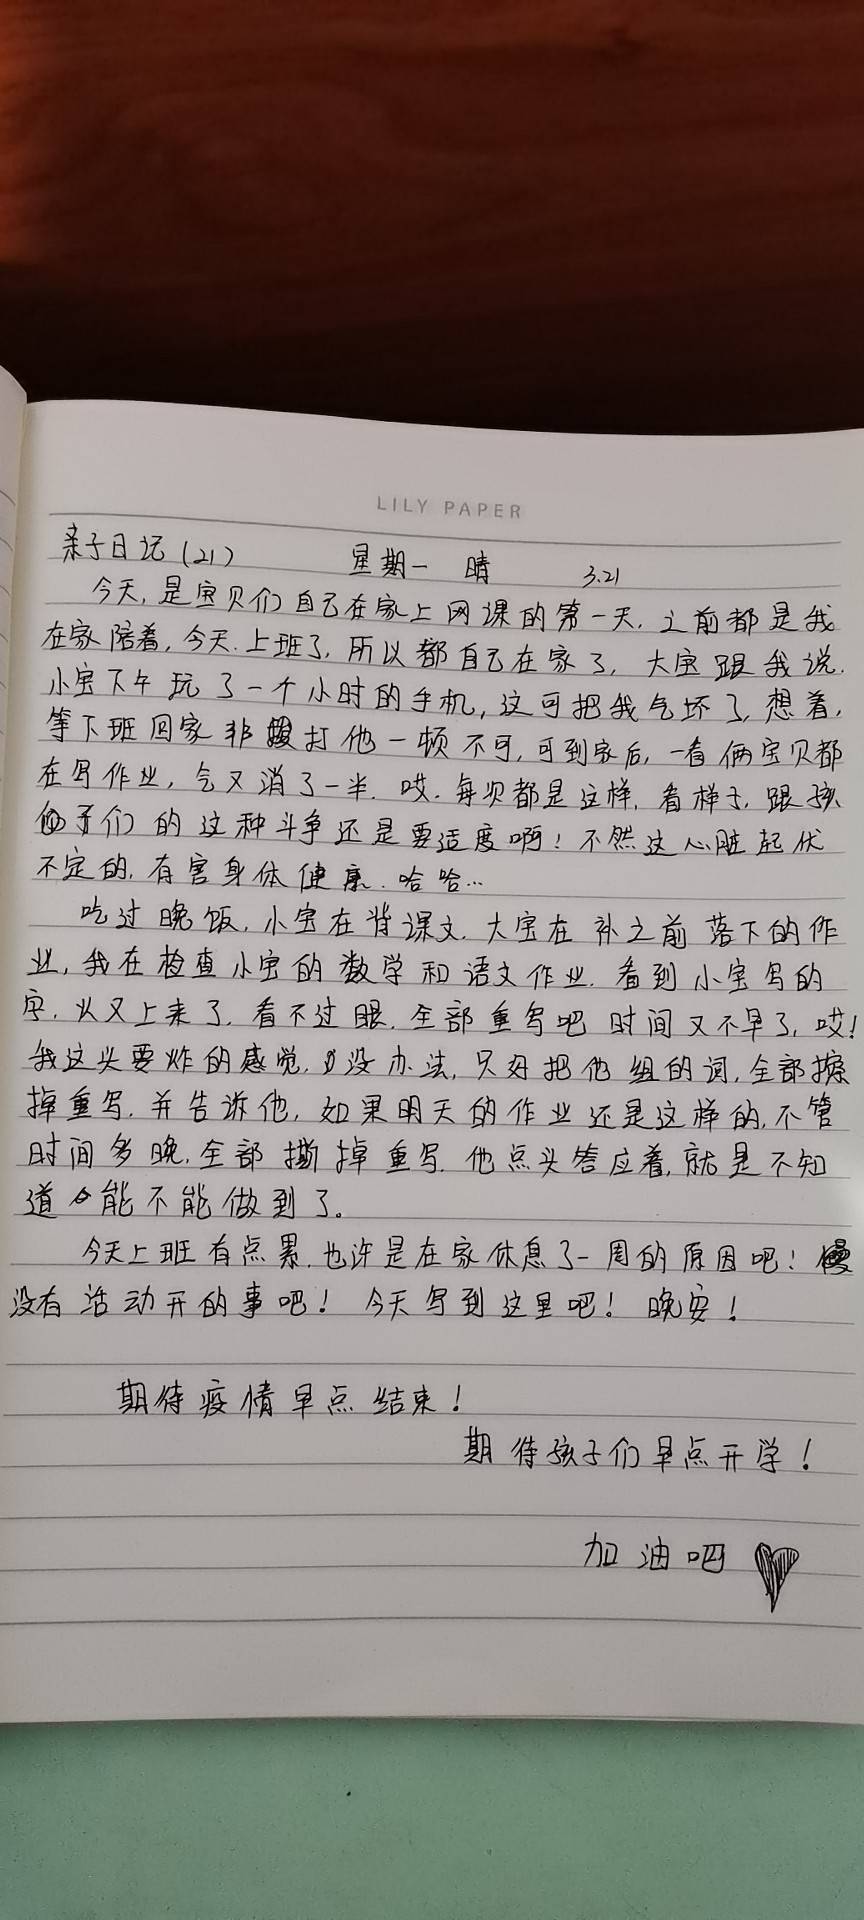 LILY PAPER
亲子日记(21) 星期一 晴 3.21
今天,是宝贝们自己在家上网课的第一天.之前都是我
在家陪着,今天.上班了,所以都自己在家了,大宝跟我说.
小宝下午玩了一个小时的手机,这可把我气坏了,想着,
等下班回家非打他一顿不可,可到家后,一看俩宝贝都
在写作业,气又消了一半.哎.每次都是这样,看样子,跟孩
子们的这种斗争还是要适度啊!不然这心脏起伏
不定的,有害身体健康.哈哈...
吃过晚饭,小宝在背课文.大宝在补之前落下的作
业,我在检查小宝的数学和语文作业.看到小宝写的
字,火又上来了,看不过眼.全部重写吧 时间又不早了,哎!
我这头要炸的感觉,没办法,只好把他组的词,全部擦
掉重写.并告诉他,如果明天的作业还是这样的,不管
时间多晚,全部撕掉重写.他点头答应着,就是不知
道能不能做到了。
今天上班有点累.也许是在家休息了一周的原因吧!
没有活动开的事吧!今天写到这里吧!晚安!
期待疫情早点结束!
期待孩子们早点开学!
加油吧